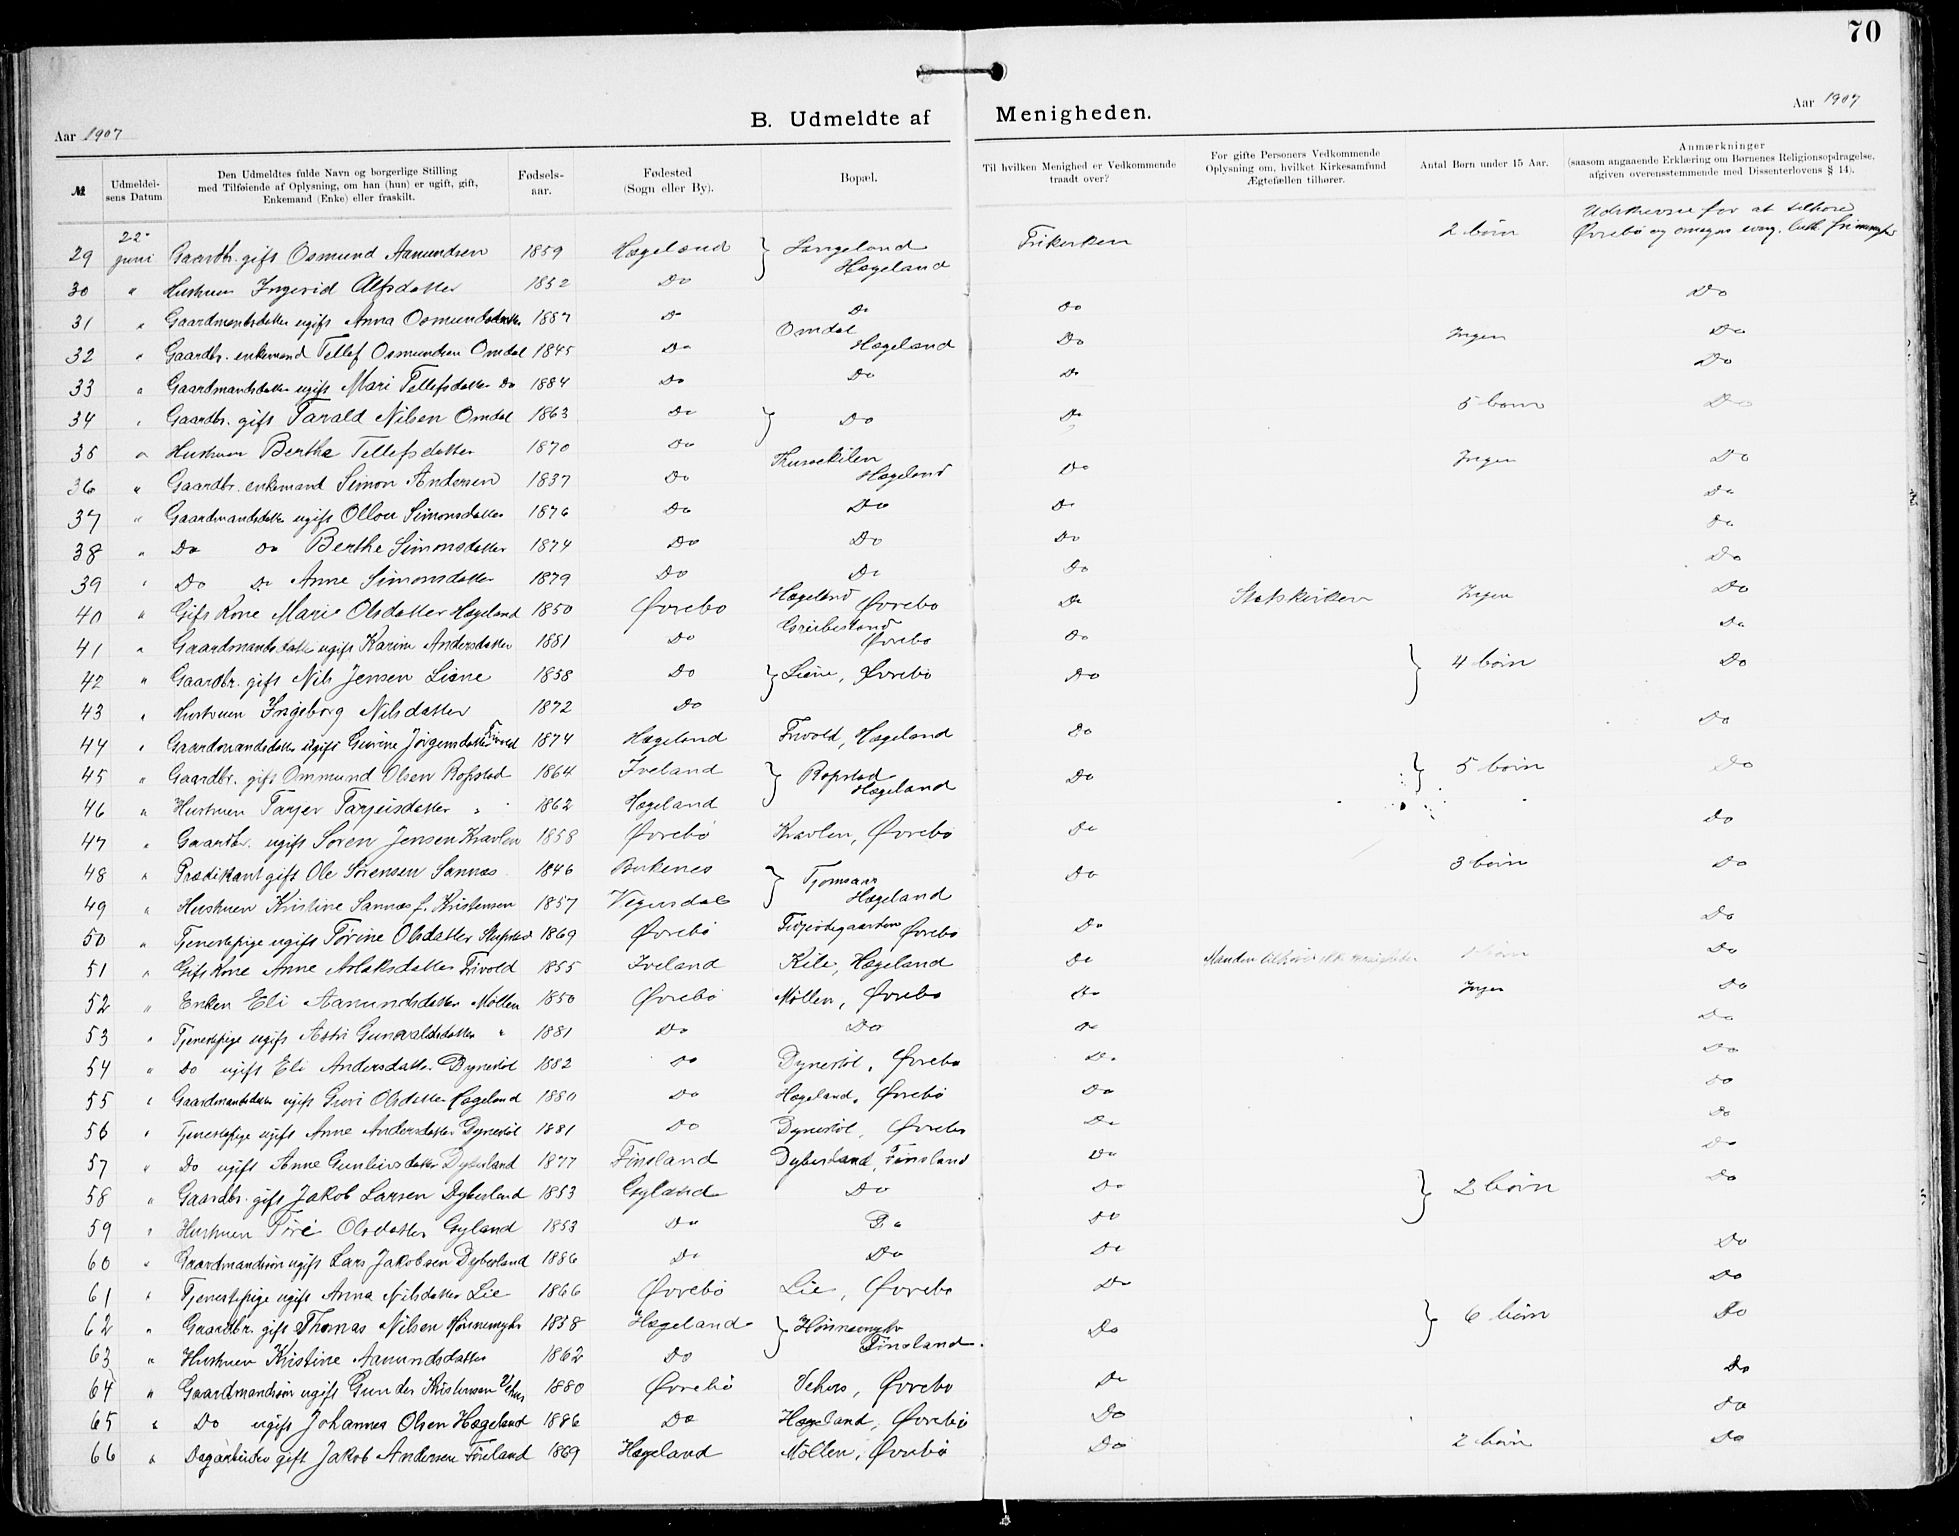 70
Aar 1907
B. Udmeldte af Menigheden.
Aar 1907
№
Udmeldelsens Datum
Den Udmeldtes fulde Navn og borgerlige Stilling med Tilføiende af Oplysning, om han (hun) er ugift, gift, Enkemand (Enke) eller fraskilt.
Fødselsaar.
Fødested (Sogn eller By).
Bopæl.
Til hvilken Menighed er Vedkommende traadt over?
For gifte Personers Vedkommende Oplysning om, hvilket Kirkesamfund Ægtefællen tilhører.
Antal Børn under 15 Aar.
Anmærkninger (saasom angaaende Erklæring om Børnenes Religionsopdragelse, afgiven overensstemmende med Dissenterlovens § 14).
29 22 juni Gaardbr. gift Osmund Aanundsen 1859 Hægeland } Langeland Hægeland Frikirken 2 børn Udskrevne for at tilhøre Øvrebø og omegns evang. luth. frimenighet
30 " Hustruen Ingerid Alfsdatter 1852 Do
31 " Gaardmandsdatter ugift Anna Osmundsdatter 1887 Do Do Do Do
32 " Gaardbr. enkemand Tellef Osmundsen Omdal 1845 Do Omdal Hægeland Do Ingen Do
33 " Gaardmandsdatter ugift Mari Tellefsdatter Do 1884 Do Do Do Do
34 " Gaardbr. gift Tarald Nilsen Omdal 1863 Do } Do Do 5 børn Do
35 " Hustruen Berthe Tellefsdatter 1870 Do
36 " Gaardbr. enkemand Simon Andersen 1837 Do Hægeland Do Ingen Do
37 " Gaardmandsdatter ugift Ollou Simonsdatter 1876 Do Do Do Do
38 " Do Do Berthe Simonsdatter 1874 Do Do Do Do
39 " Do Do Anne Simonsdatter 1879 Do Do Do Do
40 " Gift Kone Marie Olsdatter Hægeland 1850 Øvrebø Hægeland Øvrebø Do Statskirken Ingen Do
41 " Gaardmandsdatter ugift Karine Andersdatter 1881 Do Øvrebø Do Do
42 " Gaardbr. gift Nils Jensen Liene 1858 Do } Liene, Øvrebø Do } 4 børn Do
43 " Hustruen Ingeborg Nilsdatter 1872 Do
44 " Gaardmandsdatter ugift Gurine Jørgensdatter Frivold 1874 Hægeland Frivold, Hægeland Do Do
45 " Gaardbr. gift Ommund Olsen Ropstad 1864 Iveland } Ropstad Hægeland Do } 5 børn Do
46 " Hustruen Tarjer Tarjeisdatter " 1862 Hægeland
47 " Gaardbr. ugift Søren Jensen Kravlen 1858 Øvrebø Kravlen, Øvrebø Do Do
48 " Prædikant gift Ole Sørensen Sannæs 1846 } Tjomsaas Hægeland Do 3 børn Do
49 " Hustruen Kristine Sannæs f. Kristensen 1857 Vegusdal
50 " Tjenestepige ugift Tørine Olsdatter 1869 Øvrebø Øvrebø Do Do
51 " Gift Kone Anne Aslaksdatter Frivold 1855 Iveland Kile, Hægeland Do Manden tilhører ikke menigheden børn Do
52 " Enken Eli Aanundsdatter Møllen 1850 Øvrebø Møllen, Øvrebø Do Ingen Do
53 " Tjenestepige ugift Astri Gunvaldsdatter " 1881 Do Do Do Do
54 " Do ugift Eli Andersdatter Dynestøl 1882 Do Dynestøl, Øvrebø Do Do
55 " Gaardmandsdatter ugift Guri Olsdatter Hægeland 1880 Do Hægeland, Øvrebø Do Do
56 " Tjenestepige ugift Anne Andersdatter Dynestøl 1881 Do Dynestøl, Øvrebø Do Do
57 " Do ugift Anne Gunleivsdatter Dybesland 1877 Finsland Dybesland, Finsland Do Do
58 " Gaardbr. gift Jakob Larsen Dybesland 1853 Gyland Do Do } 2 børn Do
59 " Hustruen Tore Olsdatter Gyland 1853 Do Do Do
60 " Gaardmandssøn ugift Lars Jakobsen Dybesland 1886 Do Do Do Do
61 " Tjenestepige ugift Anna Nilsdatter Lie 1866 Øvrebø Lie, Øvrebø Do Do
62 " Gaardbr. gift Thomas Nilsen Hønnemyhr 1858 Hægeland } Hønnemyhr Finsland. Do } 6 børn Do
63 " Hustruen Kristine Aanundsdatter 1862 Do
64 " Gaardmandssøn ugift Gunder Kristensen Vehus 1880 Øvrebø Vehus, Øvrebø Do Do
65 " Do ugift Johannes Olsen Hægeland 1886 Do Hægeland, Øvrebø Do Do
66 " Dagarbeider gift Jakob Andersen Føreland 1869 Hægeland Møllen, Øvrebø Do 2 børn Do